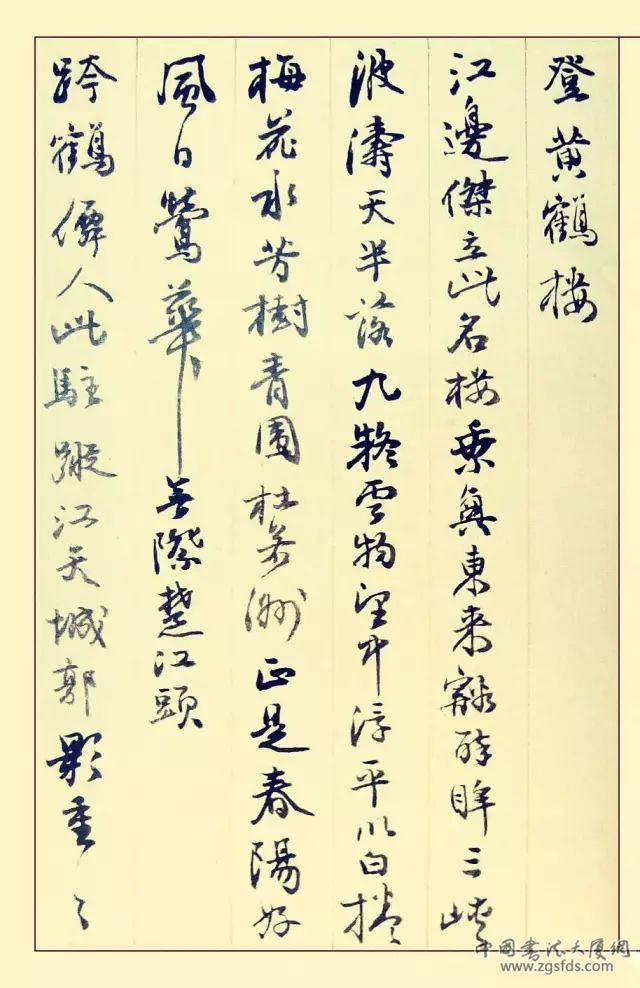 登黄鶴楼
江邊傑立此名楼乘興東来豁醉眸三峡
波濤天半落九疑雲物望中浮平川白捲
梅花水芳樹青圍杜若洲正是春陽好
風日鶯華無際楚江頭
跨鶴僊人此駐蹤江天城郭影重々
中国書法大厦網
www.zgsfds.com